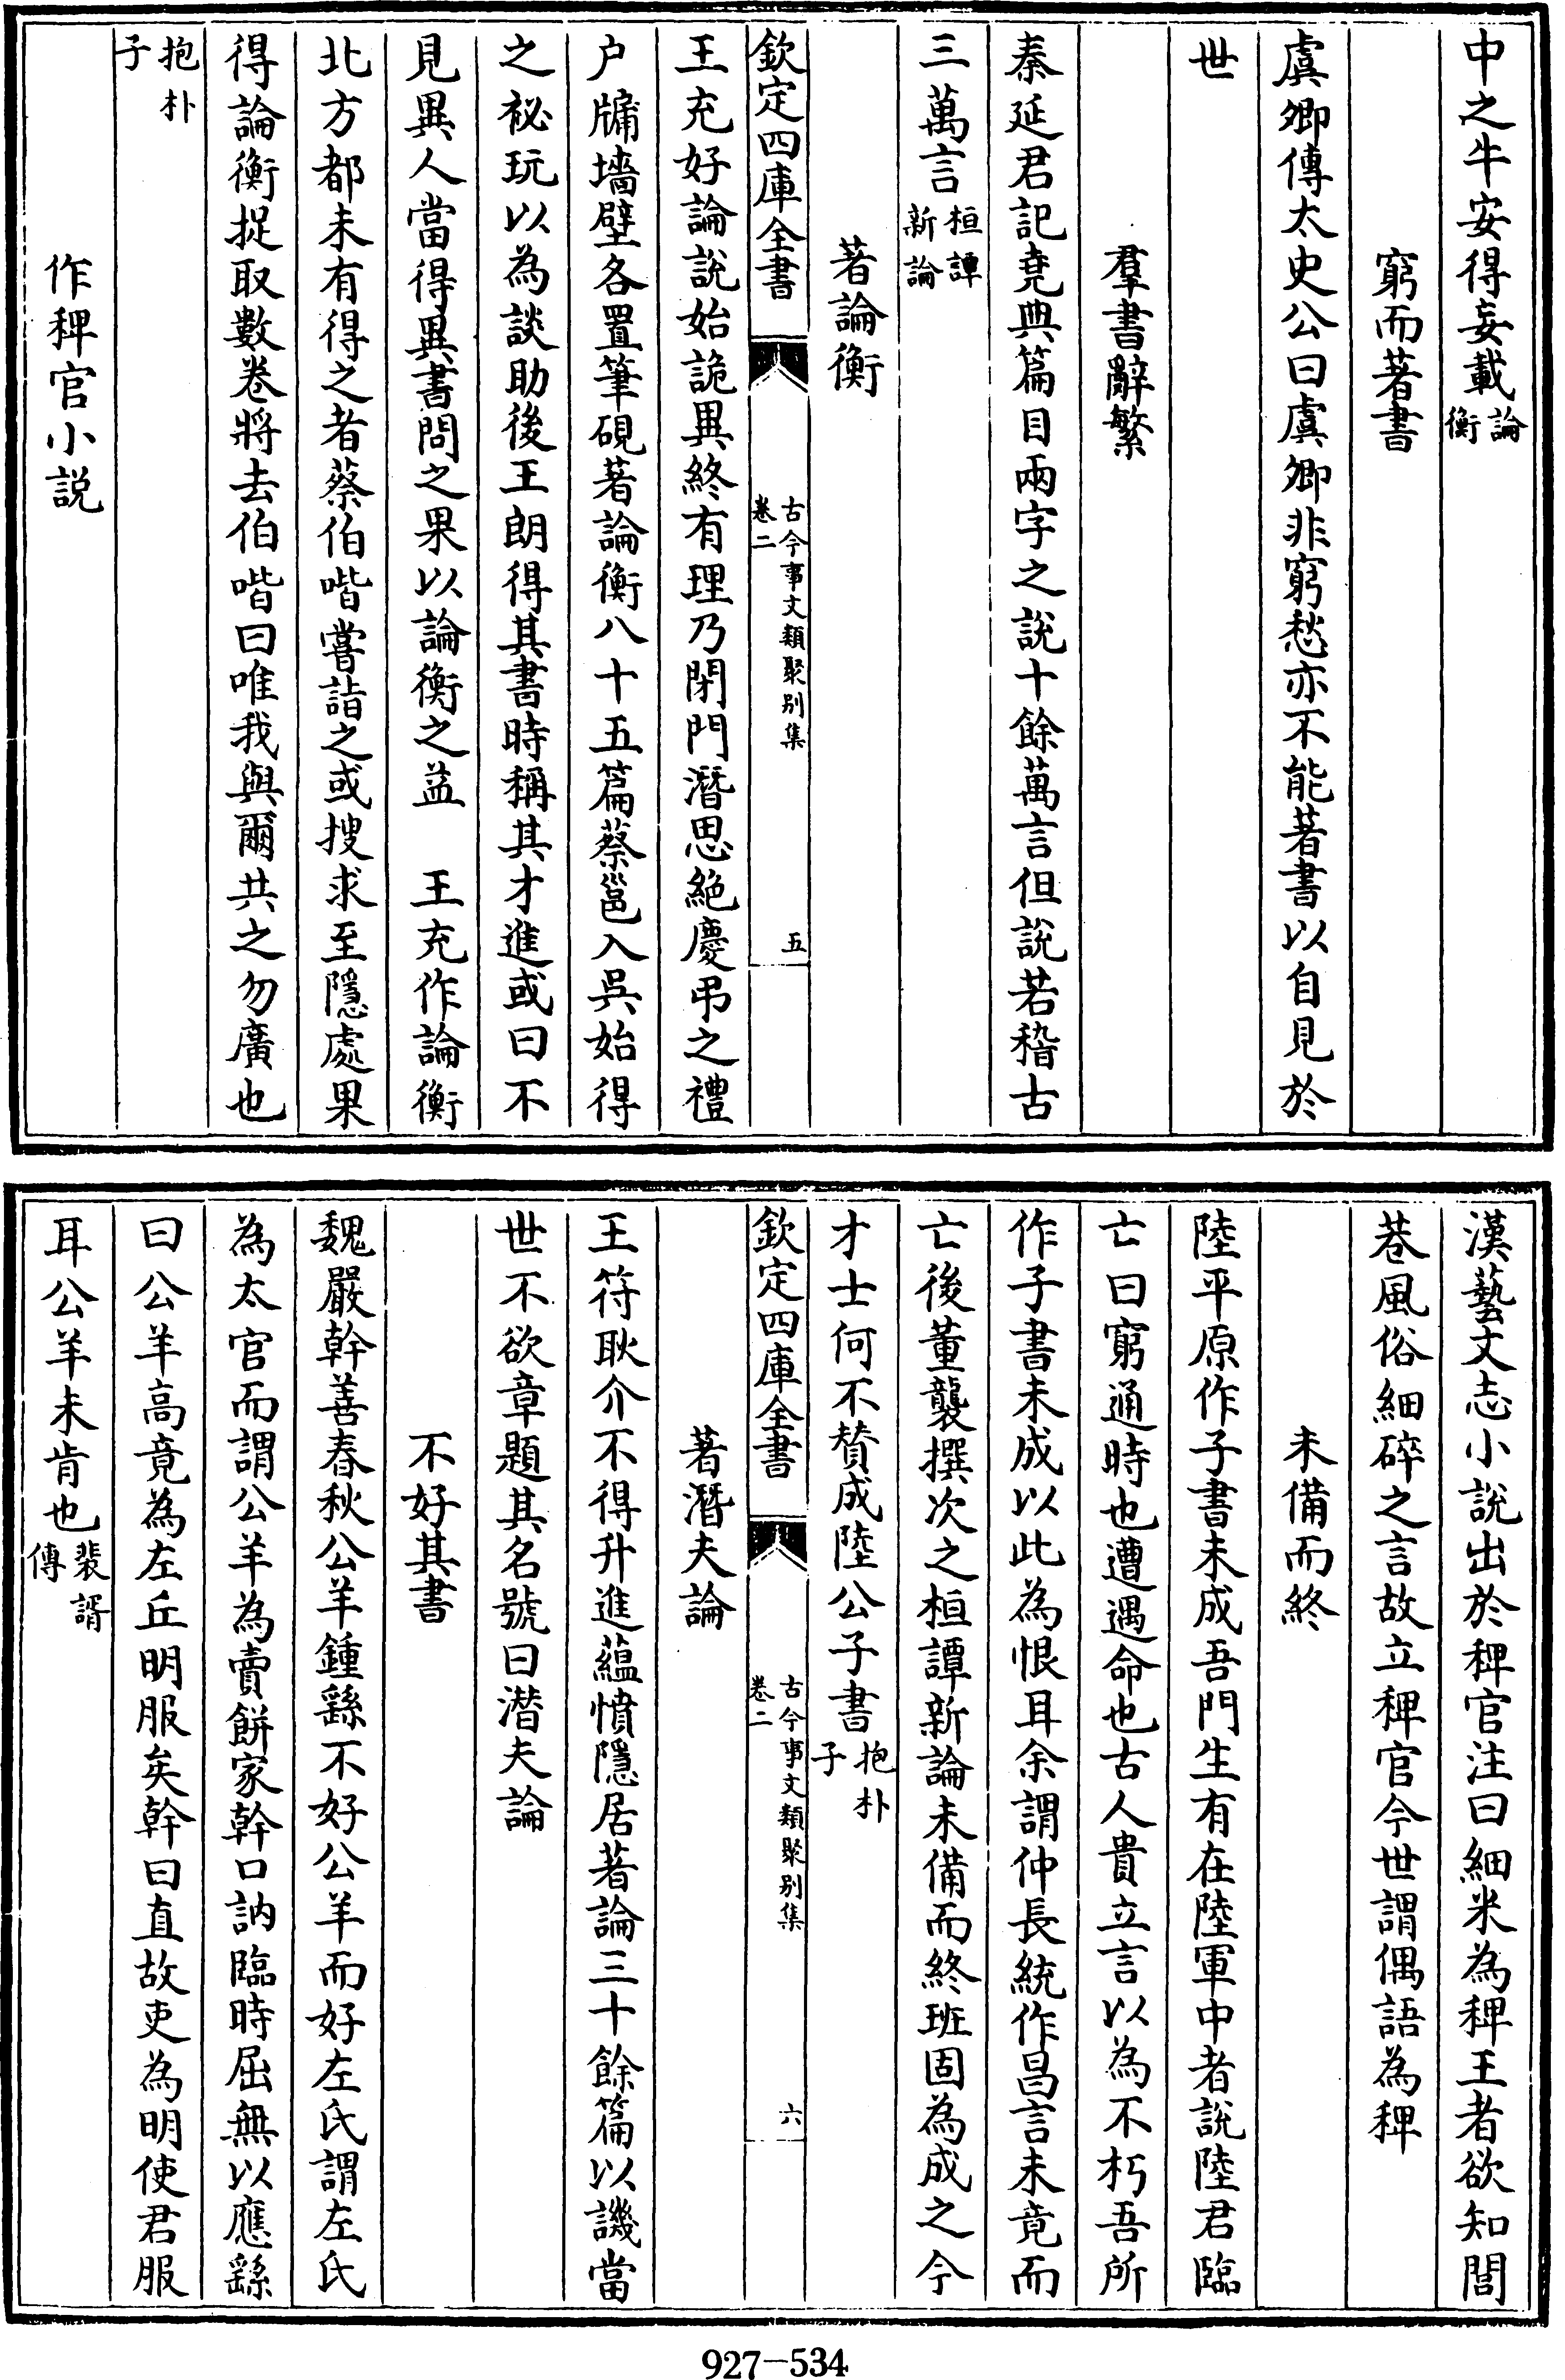 中之牛安得妄載論衡
窮而著書
虞卿傳太史公曰虞卿非窮愁亦不能著書以自見於
世
羣書辭繁
秦延君記堯典篇目兩字之說十餘萬言但說若稽古
三萬言桓譚新論
著論衡
欽定四庫全書 古今事文類聚別集卷二 五
王充好論說始詭異終有理乃閉門潛思絶慶弔之禮
户牖墻壁各置筆硯著論衡八十五篇蔡邕入吳始得
之祕玩以為談助後王朗得其書時稱其才進或曰不
見異人當得異書問之果以論衡之益 王充作論衡
北方都未有得之者蔡伯喈嘗詣之或搜求至隱處果
得論衡捉取數卷將去伯喈曰唯我與爾共之勿廣也
抱朴子
作稗官小説
漢藝文志小說出於稗官注曰細米為稗王者欲知閭
巷風俗細碎之言故立稗官今世謂偶語為稗
未備而終
陸平原作子書未成吾門生有在陸軍中者說陸君臨
亡曰窮通時也遭遇命也古人貴立言以為不朽吾所
作子書未成以此為恨耳余謂仲長統作昌言未竟而
亡後董襲撰次之桓譚新論未備而終班固為成之今
才士何不贊成陸公子書抱朴子
欽定四庫全書 古今事文類聚別集卷二 六
著潛夫論
王符耿介不得升進藴憤隱居著論三十餘篇以譏當
世不欲章題其名號曰潜夫論
不好其書
魏嚴幹善春秋公羊鍾繇不好公羊而好左氏謂左氏
為太官而謂公羊為賣餅家幹口訥臨時屈無以應繇
曰公羊高竟為左丘明服矣幹曰直故吏為明使君服
耳公羊未肯也裴諝傳
927-534